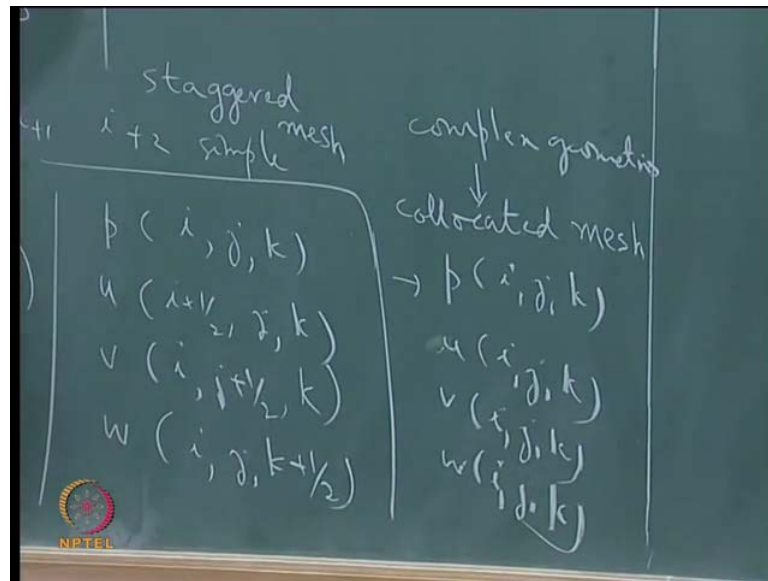 staggered mesh
i+1 i+2 simple
p (i, j, k)
u (i+1/2, j, k)
v (i, j+1/2, k)
w (i, j, k+1/2)
complex geometries
↓
collocated mesh
→ p (i, j, k)
u (i, j, k)
v (i, j, k)
w (i, j, k)
)
NPTEL